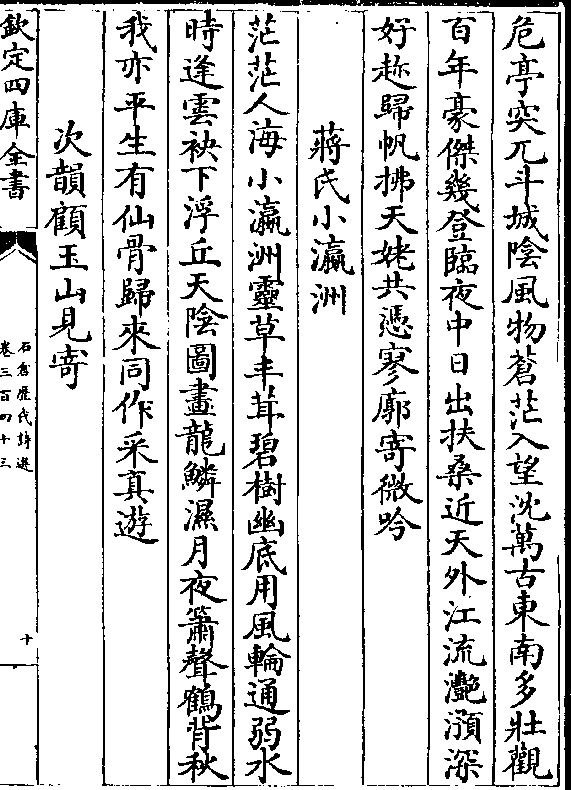 危亭突兀斗城陰風物蒼茫入望沈萬古東南多壯觀
百年豪傑幾登臨夜中日出扶桑近天外江流灎澦深
好趂歸帆拂天姥共憑寥廓寄微吟
蔣氏小瀛洲
茫茫人海小瀛洲靈草丰茸碧樹幽底用風輪通弱水
時逢雲袂下浮丘天陰圖畫龍鱗濕月夜簫聲鶴背秋
我亦平生有仙骨歸來同作采真遊
次韻顧玉山見寄
欽定四庫全書
石倉歴代詩選
卷三百四十三
十